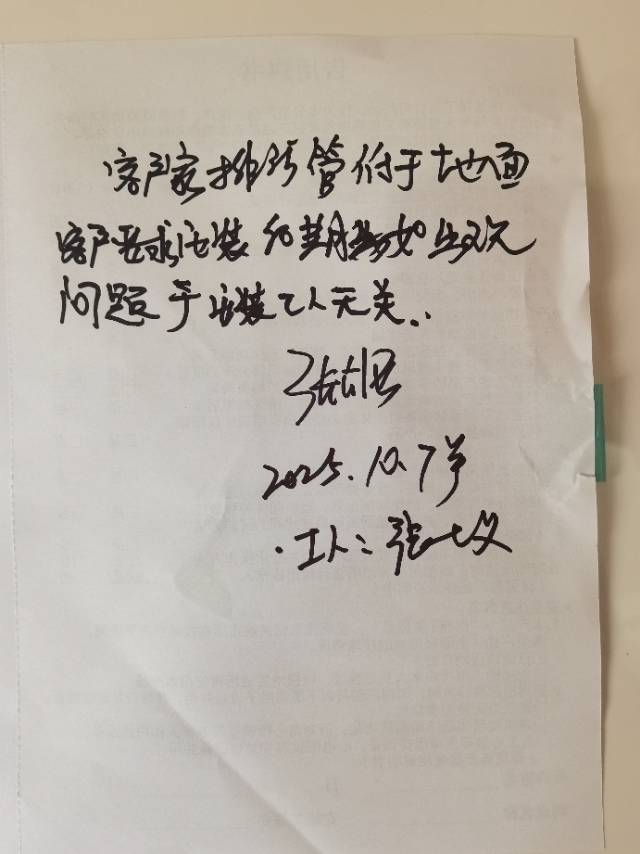 客户家排污管付于地面
客户要求安装后期如出现
问题于安装工人无关..
2025.10.7号
·工人:张